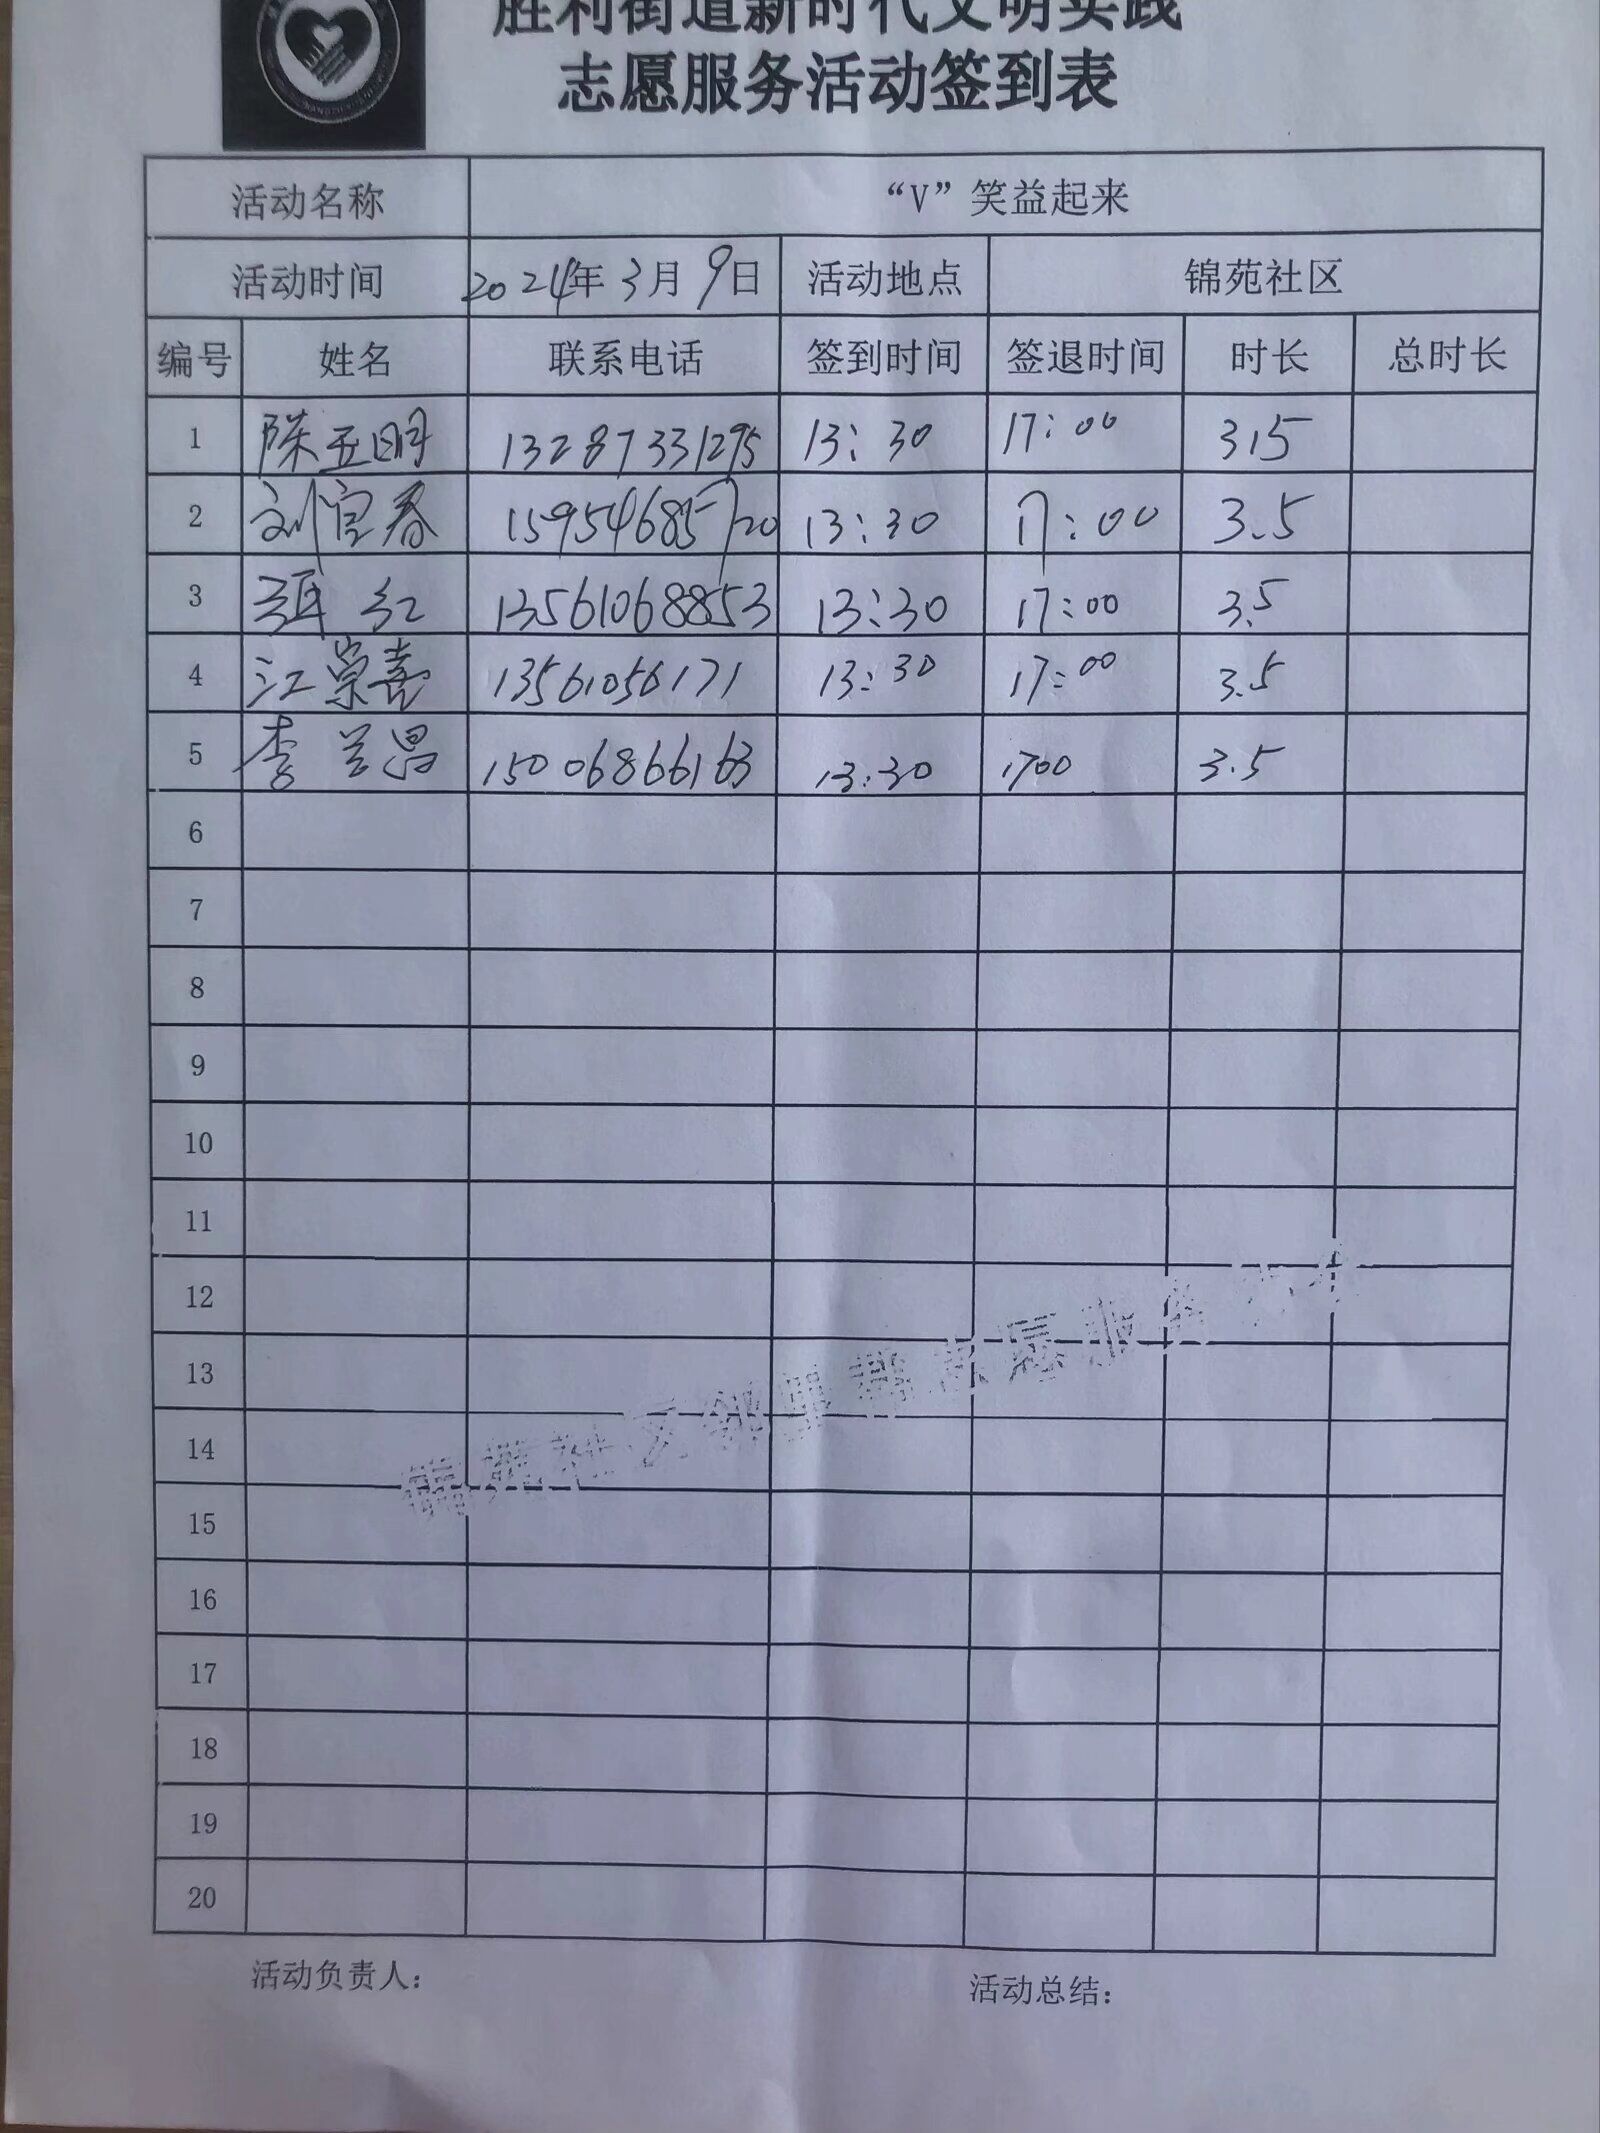 胜利街道新时代文明实践
志愿服务活动签到表
活动名称 “V”笑益起来
活动时间 2024年3月9日 活动地点 锦苑社区
编号 姓名 联系电话 签到时间 签退时间 时长 总时长
1 陈玉明 13287331295 13:30 17:00 3.5
2 刘宜春 15954685720 13:30 17:00 3.5
3 红 13561068853 13:30 17:00 3.5
4 江崇喜 13561056171 13:30 17:00 3.5
5 李兰昌 15006866163 13:30 1700 3.5
6
7
8
9
10
11
12
13
14
15
16
17
18
19
20
锦苑社区邻里 志愿服务
活动负责人： 活动总结：